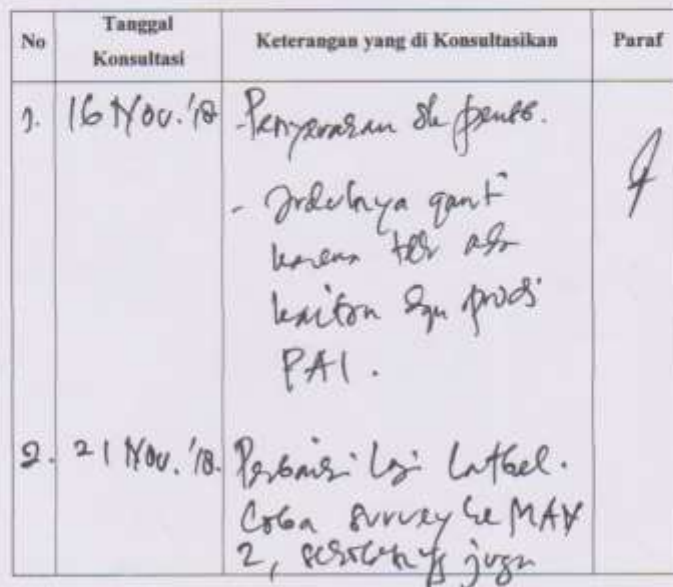 No Tanggal Konsultasi Keterangan yang di Konsultasikan Paraf
1. 16 Nov. '18 - Penyerahan Sk pemb.
- Judulnya ganti
karena tdk ada
kaitan dgn prodi
PAI.
2. 21 Nov. '18. Perbaiki lagi Latbel.
Coba survey ke MAN
2, sebelumnya juga